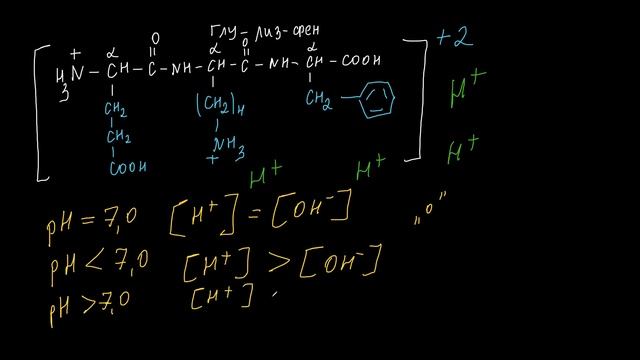 Глу – лиз – фен
H₃N⁺ – CH – C – NH – CH – C – NH – CH – COOH
α O α O α
+2
CH₂ (CH₂)₄ CH₂
CH₂ NH₃⁺
COOH
H⁺
H⁺
H⁺ H⁺
pH = 7,0 [H⁺] = [OH⁻] „0"
pH < 7,0 [H⁺] > [OH⁻]
pH > 7,0 [H⁺]